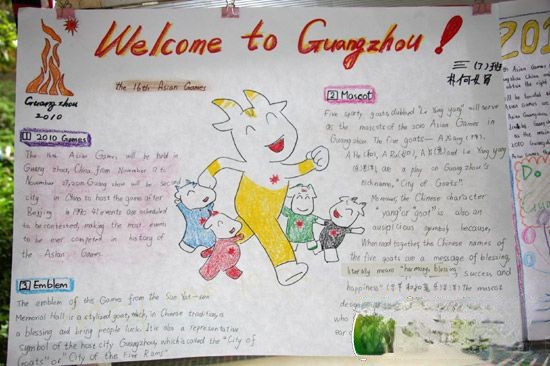 Welcome to Guangzhou!
三(7)班
Guangzhou
2010
the 16th Asian Games
1 2010 Games
The 16th Asian Games will be held in
Guangzhou, China, from November 12 to
November 27, 2010 Guang zhou will be second
city in China to host the game after
Beijing in 1990. 41 events are scheduled
to be contested, making the most events
to be ever competed in history of
the Asian Games.
2 Mascot
Five sporty goats, dubbed "Le Yang yang" will serve
as the mascots of the 2010 Asian Games in
Guangzhou. The five goats— A Xiang (祥),
A He (和), A Ru (如), A Yi (意) and Le Yang yang
are a play on Guangzhou's
nickname, "City of Goats".
Moreover, the Chinese character
"yang" or "goat" is also an
auspicious symbol because,
When read together, the Chinese names of
the five goats are a message of blessing,
literally means "harmony, blessing,
success and
happiness" the mascot
who
3 Emblem
The emblem of the Games from the Sun Yat-sen
Memorial Hall is a stylized goat, which, in Chinese tradition, a
a blessing and bring people luck. It is also a representative
symbol of the host city Guangzhou, which is called the "City of
Goats" or "City of the Five Rams".
201
Do